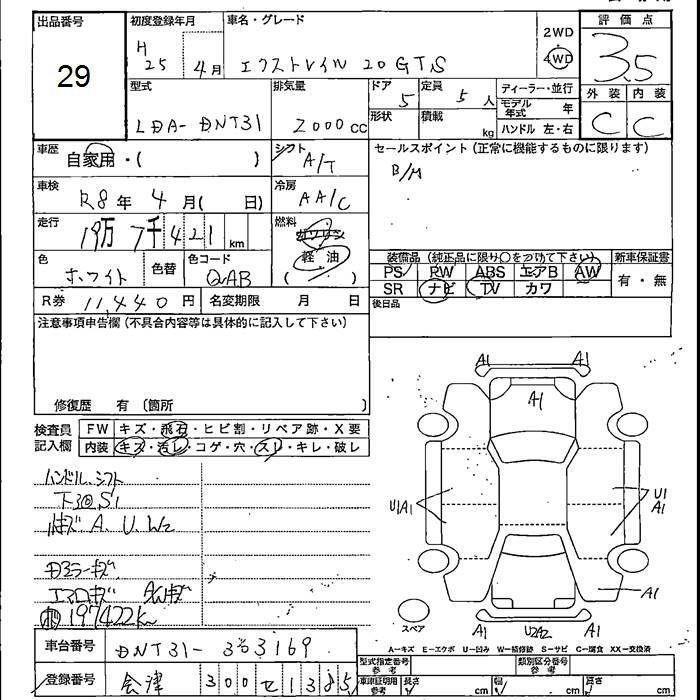 出品番号
29
初度登録年月
H25 4月
車名・グレード
エクストレイル 20GTS
2WD
4WD
評価点
3.5
外装 内装
C C
型式
LDA-DNT31
排気量
2000cc
ドア 5
形状
定員 5人
積載 kg
ディーラー・並行
モデル年式 年
ハンドル 左・右
車歴
自家用・( )
シフト
A/T
セールスポイント(正常に機能するものに限ります)
車検
R8年 4月( 日)
冷房
AA/C
走行
19万7千421km
燃料
ガソリン
軽油
( )
色
ホワイト
色替
色コード
QAB
装備品(純正品に限り○をつけて下さい)
新車保証書
PS PW ABS エアB AW
有・無
SR ナビ TV カワ
R券 11,440円
名変期限 月 日
後日品
注意事項申告欄(不具合内容等は具体的に記入して下さい)
修復歴 有〔箇所 〕
検査員
記入欄
FW キズ・飛石・ヒビ割・リペア跡・X要
内装 キズ・汚レ・コゲ・穴・スレ・キレ・破レ
ハンドル、シフト
下廻S1
キズ A. U. W2
ミラーキズ
エアロキズ
197422k
A1 A1
A1
U1A1
U1
A1
A1
スペア
A1 U2A2 A1
A-キズ E-エクボ U-凹み W-補修跡 S-サビ C-腐食 XX-交換済
車台番号
DNT31-303169
登録番号
会津 300 セ1385
型式指定番号
参考
類別区分番号
参考
車庫証明用
参考
長さ cm
幅 cm
高さ cm